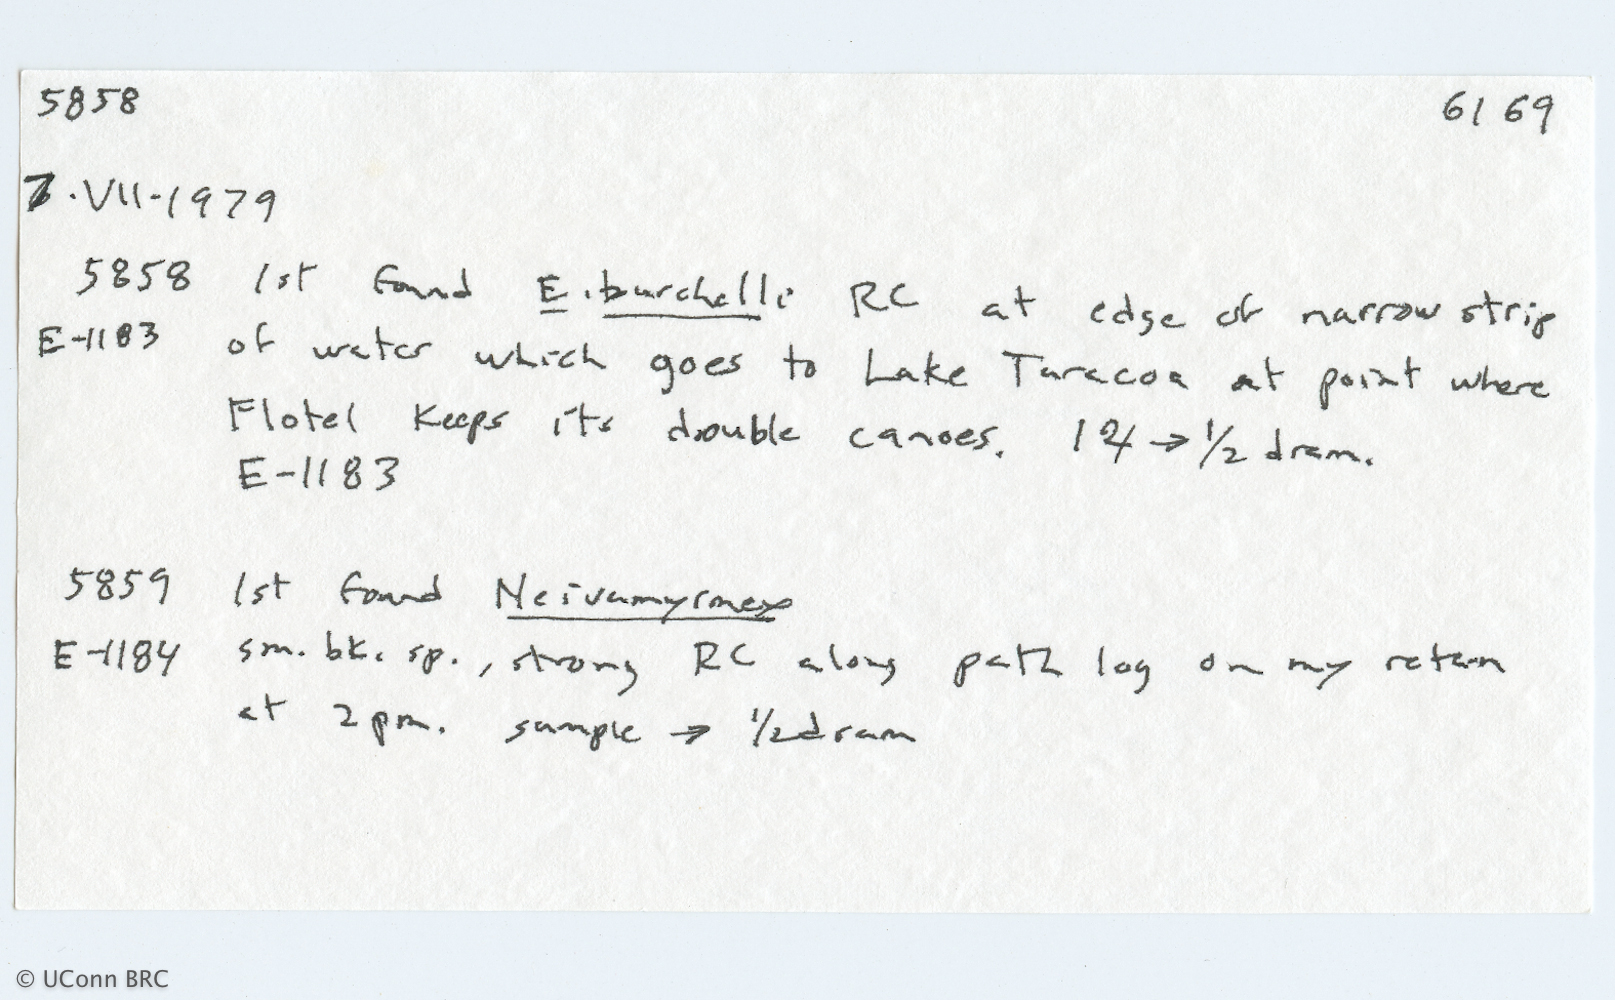 5858 6169
7.VII-1979
5858 1st found E. burchelli RC at edge of narrow strip
E-1183 of water which goes to Lake Taracoa at point where
Flotel keeps its double canoes. 1♀ → 1/2 dram.
E-1183
5859 1st found Neivamyrmex
E-1184 sm. bk. sp., strong RC along path log on my return
at 2pm. sample → 1/2 dram
© UConn BRC